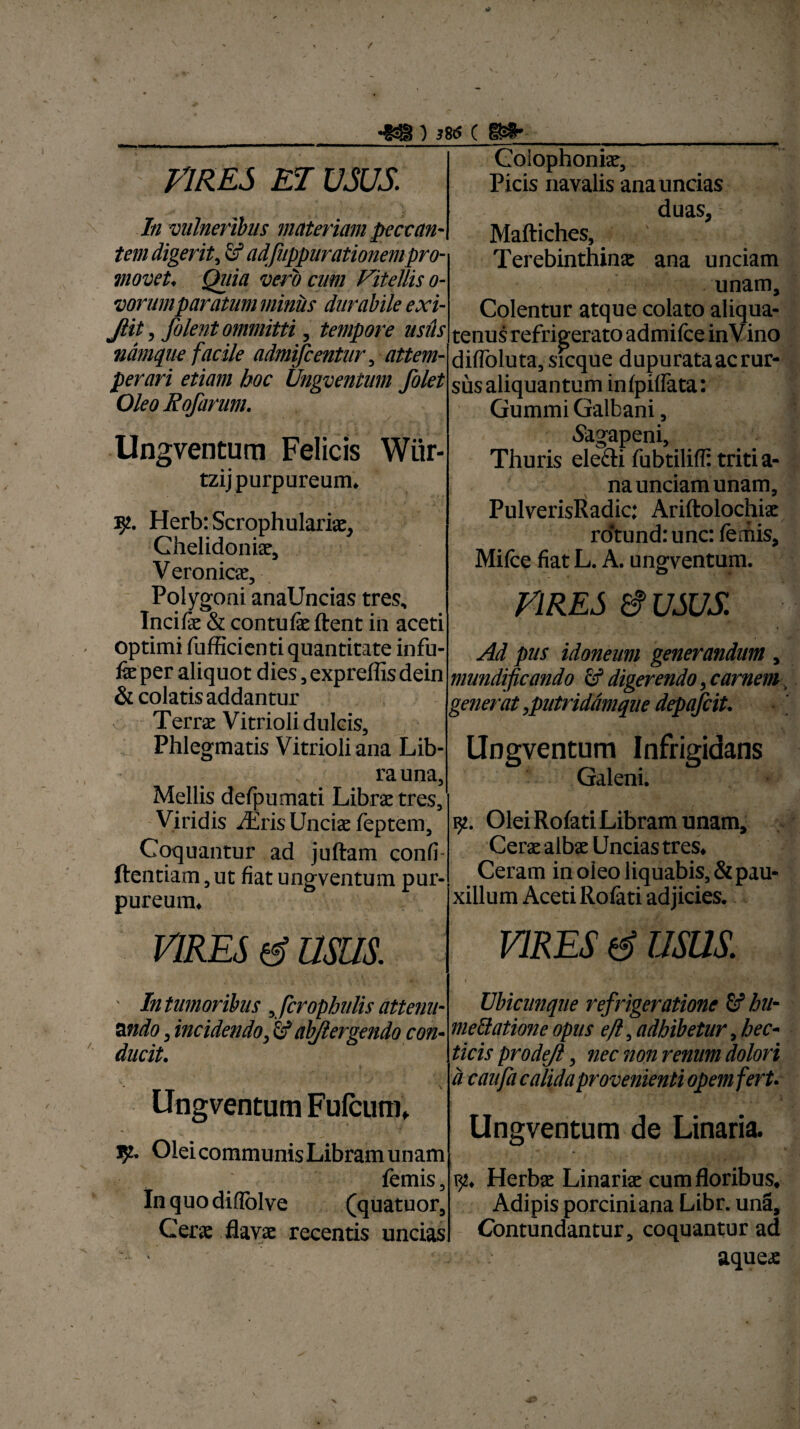 ) 386 (
VIRES ET USUS.
In vulneribus materiam peccan-
tem digerit, & ad ſuppurationem pro-
movet. Quia verò cum Vitellis o-
vorum paratum minùs durabile exi-
ſtit, ſolent ommitti, tempore usûs
námque facile admiſcentur, attem-
perari etiam hoc Ungventum ſolet
Oleo Roſarum.
Ungventum Felicis Wür-
tzij purpureum.
℞. Herb: Scrophulariæ,
Chelidoniæ,
Veronicæ,
Polygoni ana Uncias tres,
Inciſæ & contuſæ ſtent in aceti
optimi ſufficienti quantitate infu-
ſæ per aliquot dies, expreſſis dein
& colatis addantur
Terræ Vitrioli dulcis,
Phlegmatis Vitrioli ana Lib-
ra una,
Mellis deſpumati Libræ tres,
Viridis Æris Unciæ ſeptem,
Coquantur ad juſtam conſi-
ſtentiam, ut fiat ungventum pur-
pureum.
VIRES & USUS.
In tumoribus, ſcrophulis attenu-
ando, incidendo, & abſtergendo con-
ducit.
Ungventum Fuſcum.
℞. Olei communis Libram unam
ſemis,
In quo diſſolve (quatuor,
Ceræ flavæ recentis uncias
Colophoniæ,
Picis navalis ana uncias
duas,
Maſtiches,
Terebinthinæ ana unciam
unam,
Colentur atque colato aliqua-
tenus refrigerato admiſce in Vino
diſſoluta, sicque dupurata ac rur-
sùs aliquantum inſpiſſata:
Gummi Galbani,
Sagapeni,
Thuris electi ſubtiliſſ: triti a-
na unciam unam,
Pulveris Radic: Ariſtolochiæ
rotund: unc: ſemis,
Miſce fiat L. A. ungventum.
VIRES & USUS.
Ad pus idoneum generandum,
mundificando & digerendo, carnem
generat, putridámque depaſcit.
Ungventum Infrigidans
Galeni.
℞. Olei Roſati Libram unam,
Ceræ albæ Uncias tres.
Ceram in oleo liquabis, & pau-
xillum Aceti Roſati adjicies.
VIRES & USUS.
Ubicunque refrigeratione & hu-
mectatione opus eſt, adhibetur, hec-
ticis prodeſt, nec non renum dolori
à cauſa calida provenienti opem fert.
Ungventum de Linaria.
℞. Herbæ Linariæ cum floribus.
Adipis porcini ana Libr. unâ,
Contundantur, coquantur ad
aqueæ